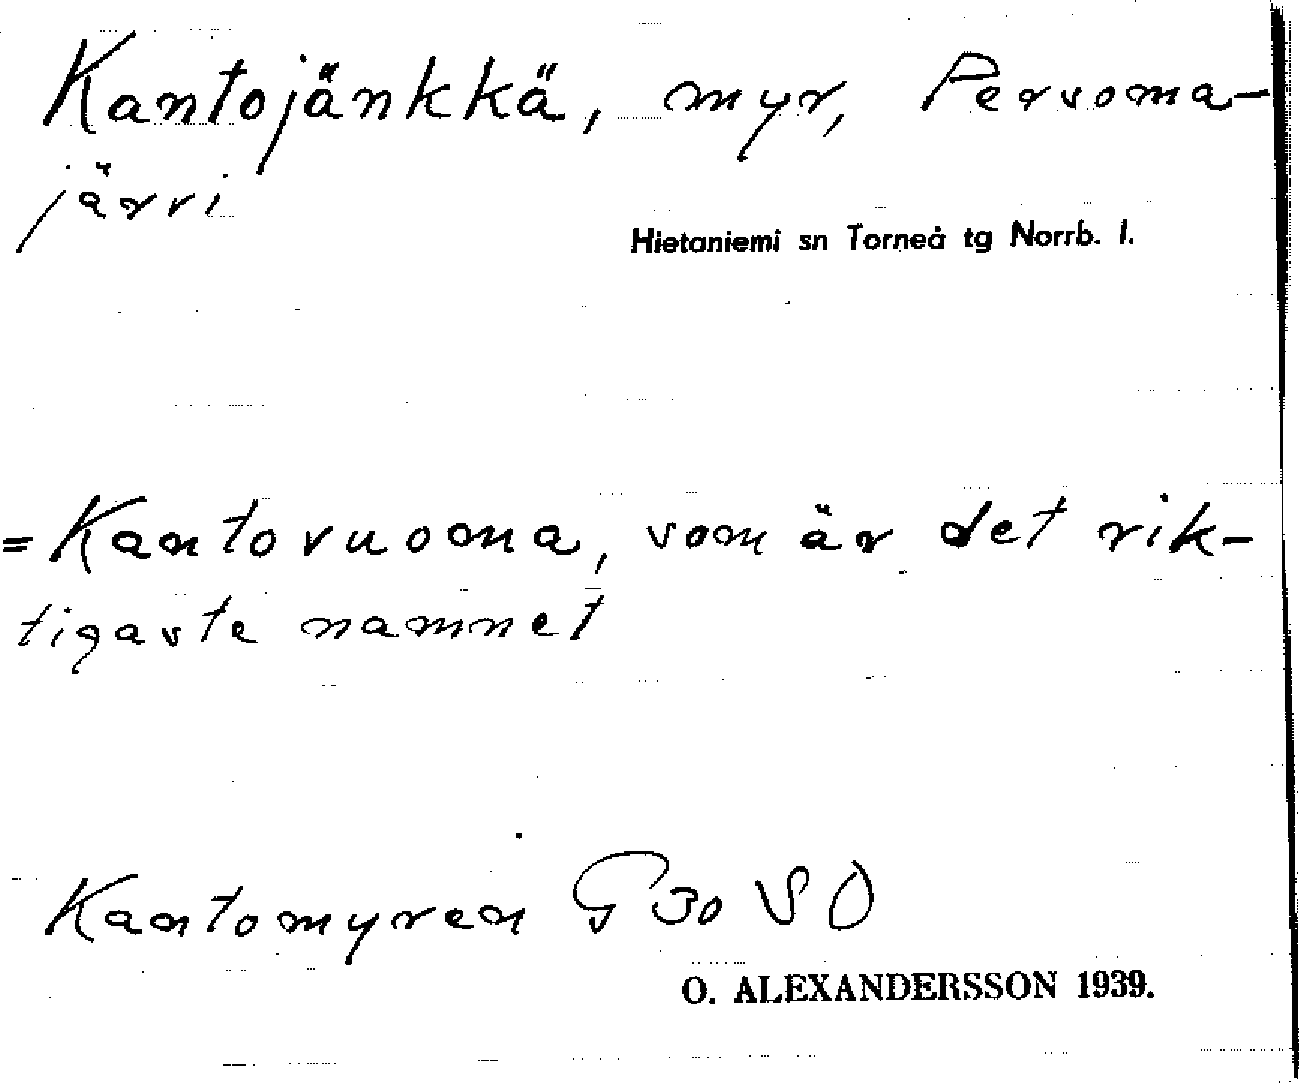 Kantojänkkä, myr, Persoma-
järvi
Hietaniemi sn Torneå tg Norrb. l.
=Kantovuoma, som är det rik-
tigaste namnet
Kantomyren G 30 SO
O. ALEXANDERSSON 1939.